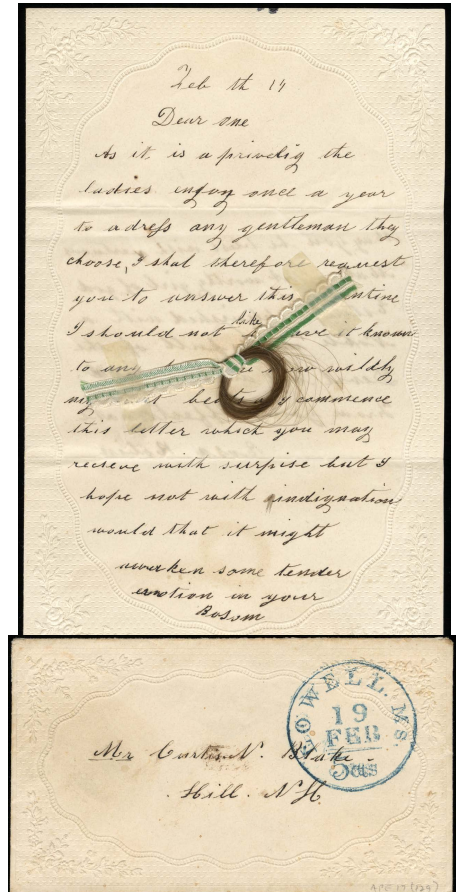 Feb th 14
Dear one
As it is a privelig the
ladies injoy once a year
to adress any gentleman they
choose, I shal therefore request
you to answer this ntine
like
I should not have it known
to any how wildly
my beats as I commence
this letter which you may
recieve with surprise but I
hope not with indignation
would that it might
awaken some tender
emotion in your
Bosom
LOWELL. MS.
19
FEB
5 cts
Mr Curtis N. Blake.
Hill. N H.
APE 17 (129)